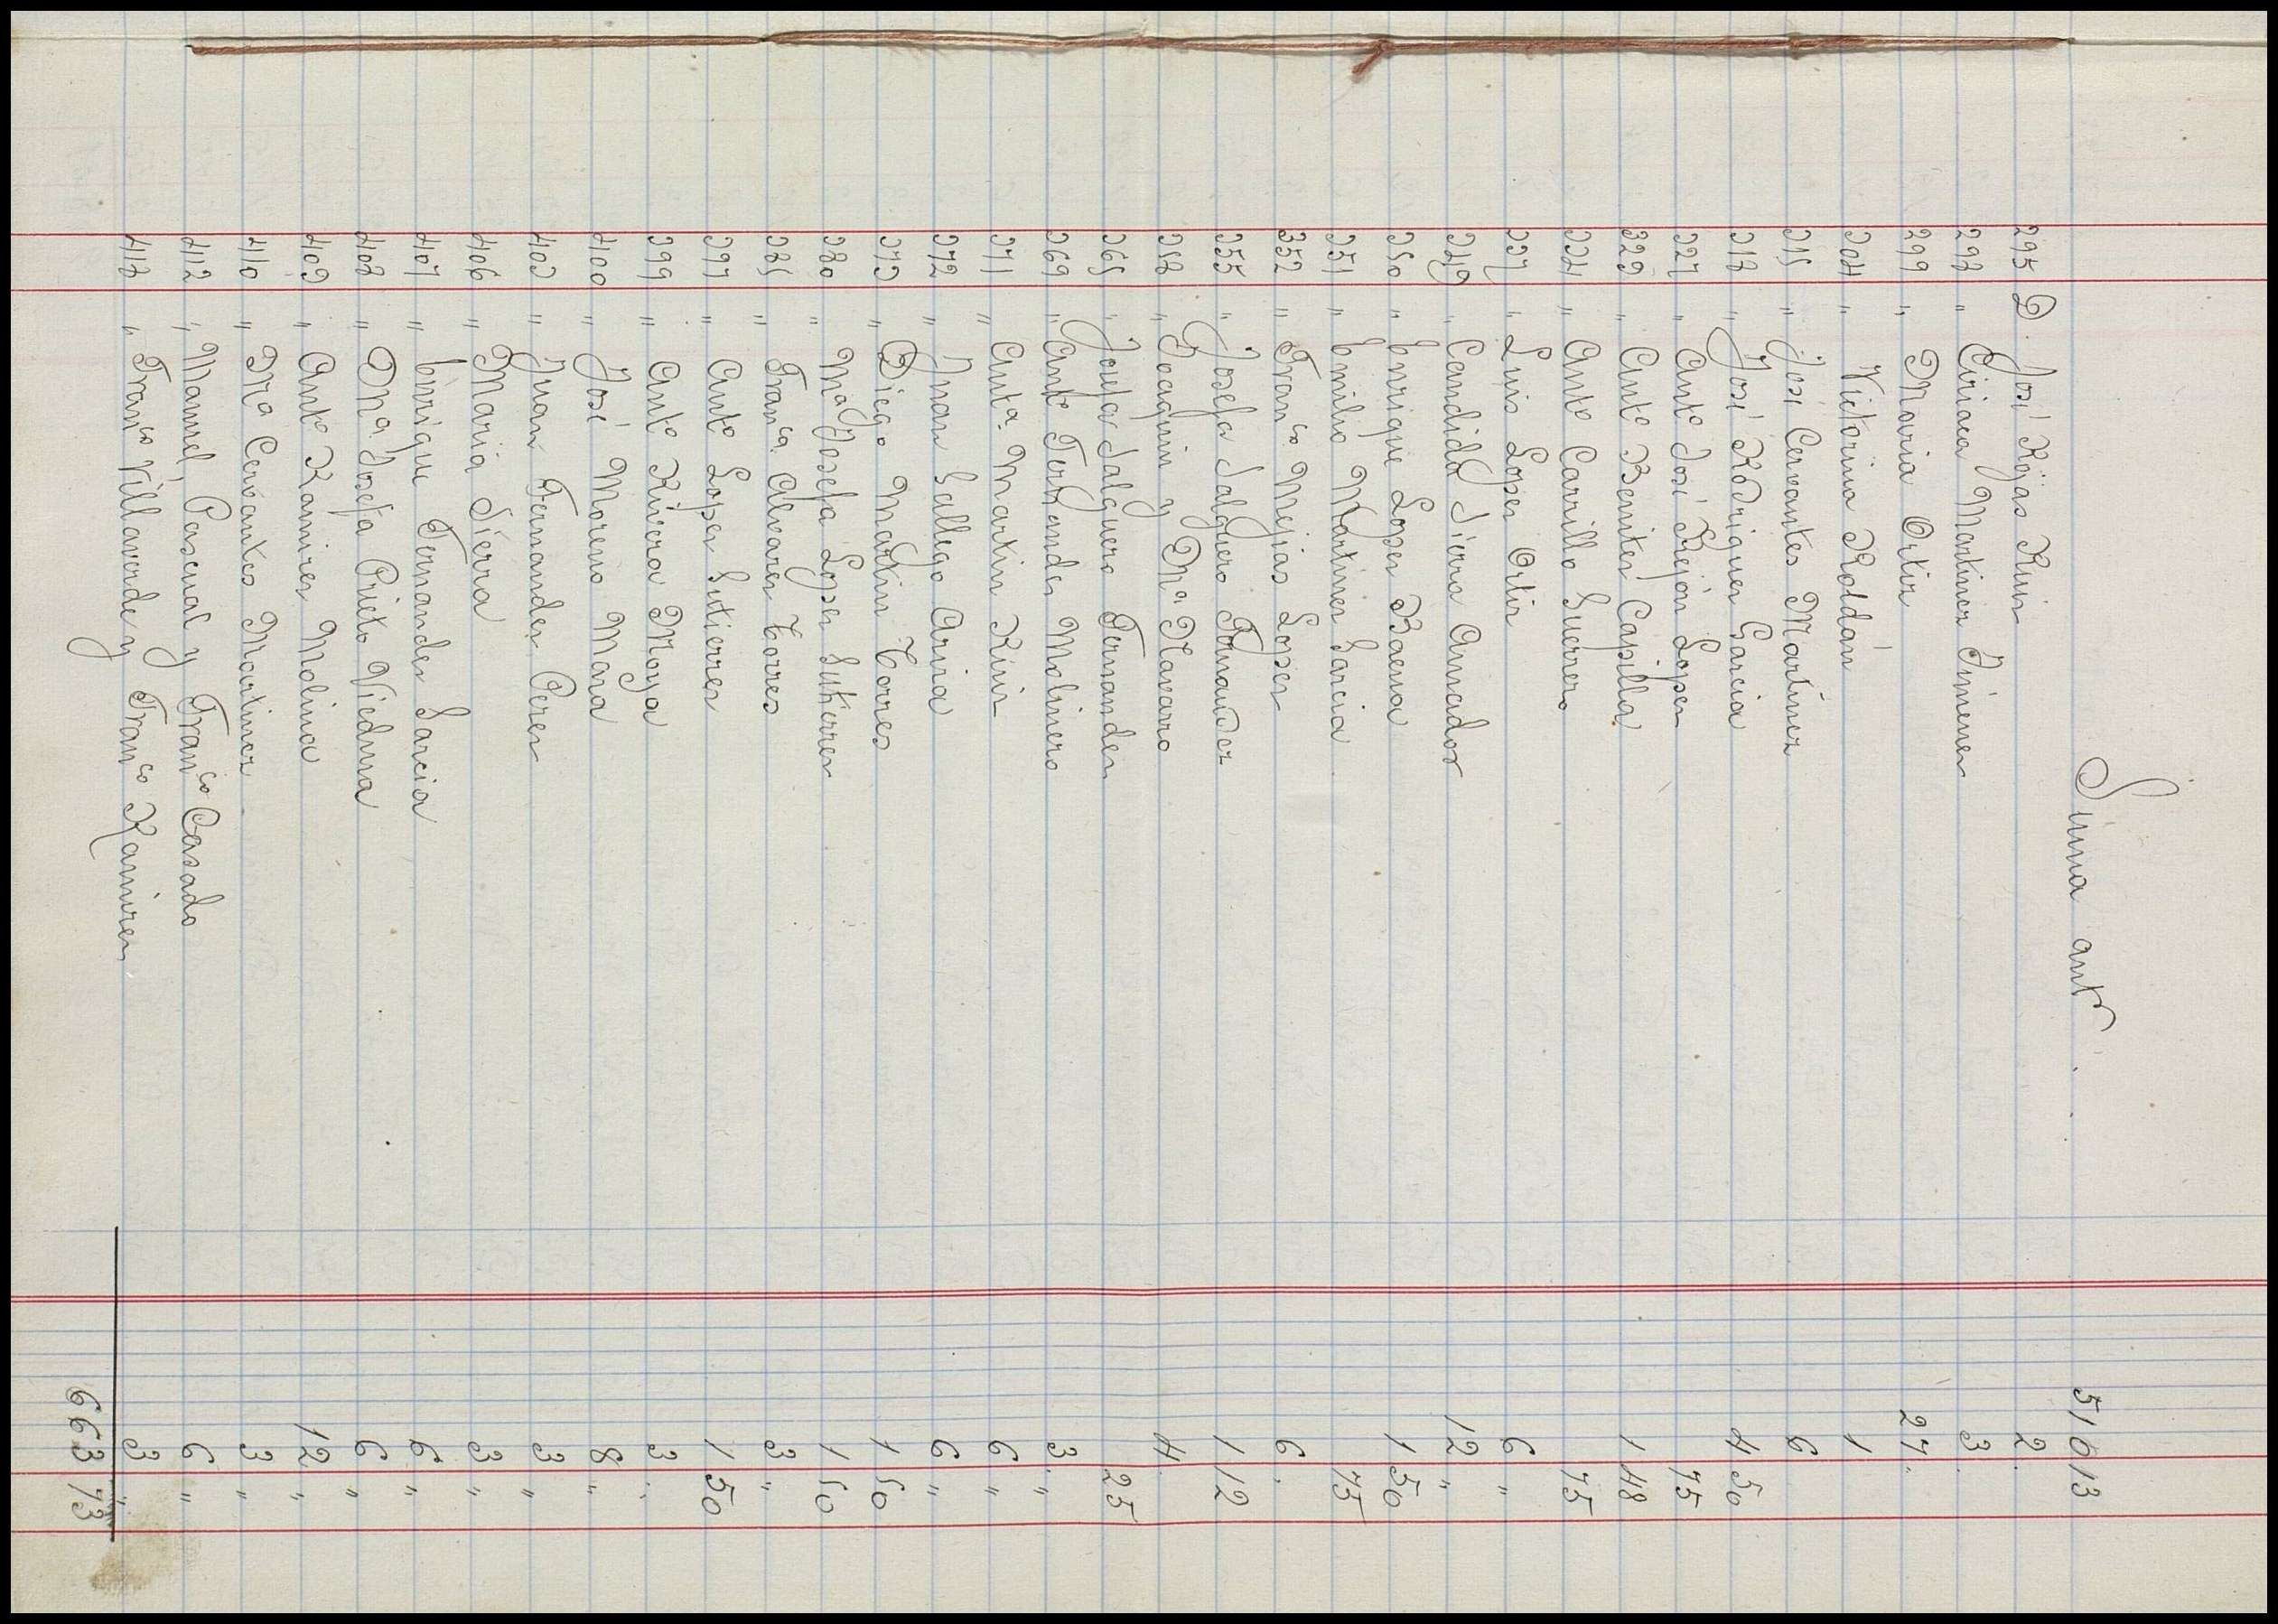 Suma antr . . . 510 13
295 D. José Rojas Ruiz 2 .
298 " Ciriaca Martinez Jimenez 3 .
299 " Maria Ortiz 27 .
304 " Victorina Roldán 1
315 " José Cervantes Martínez 6
318 " José Rodriguez Garcia 4 50
327 " Antº José Rejón Lopez 75
329 " Antº Benitez Capilla 1 48
334 " Antº Carrillo Guerrero 75
337 " Luis Lopez Ortiz 6 "
349 " Candida Sierra Amador 12 "
350 " Enrique Lopez Baena 1 50
351 " Emilio Martinez Garcia 75
352 " Franco Mejias Lopez 6 .
355 " Josefa Salguero Fernandez 1 12
358 " Joaquin y Mª Navarro 4
365 " Josefa Salguero Fernandez 25
369 " Antº Fernandez Molinero 3 "
371 " Antª Martin Ruiz 6 "
372 " Juan Gallego Ariza 6 "
373 " Diego Martin Torres 1 50
380 " Mª Josefa Lopez Gutierrez 1 50
385 " Franca Alvarez Torres 3 "
397 " Antº Lopez Gutierrez 1 50
399 " Antº Rivera Moya 3 "
400 " José Moreno Mara 8 "
403 " Juan Fernandez Perez 3 "
406 " Maria Sierra 3 "
407 " Enrique Fernandez Garcia 6 "
408 " Mª Josefa Prieto Viedma 6 "
409 " Antº Ramirez Molina 12 "
410 " Mª Cervantes Martinez 3 "
412 " Manuel Pascual y Franco Casado 6 "
418 " Franco Villaverde y Franco Ramirez 3 "
663 73